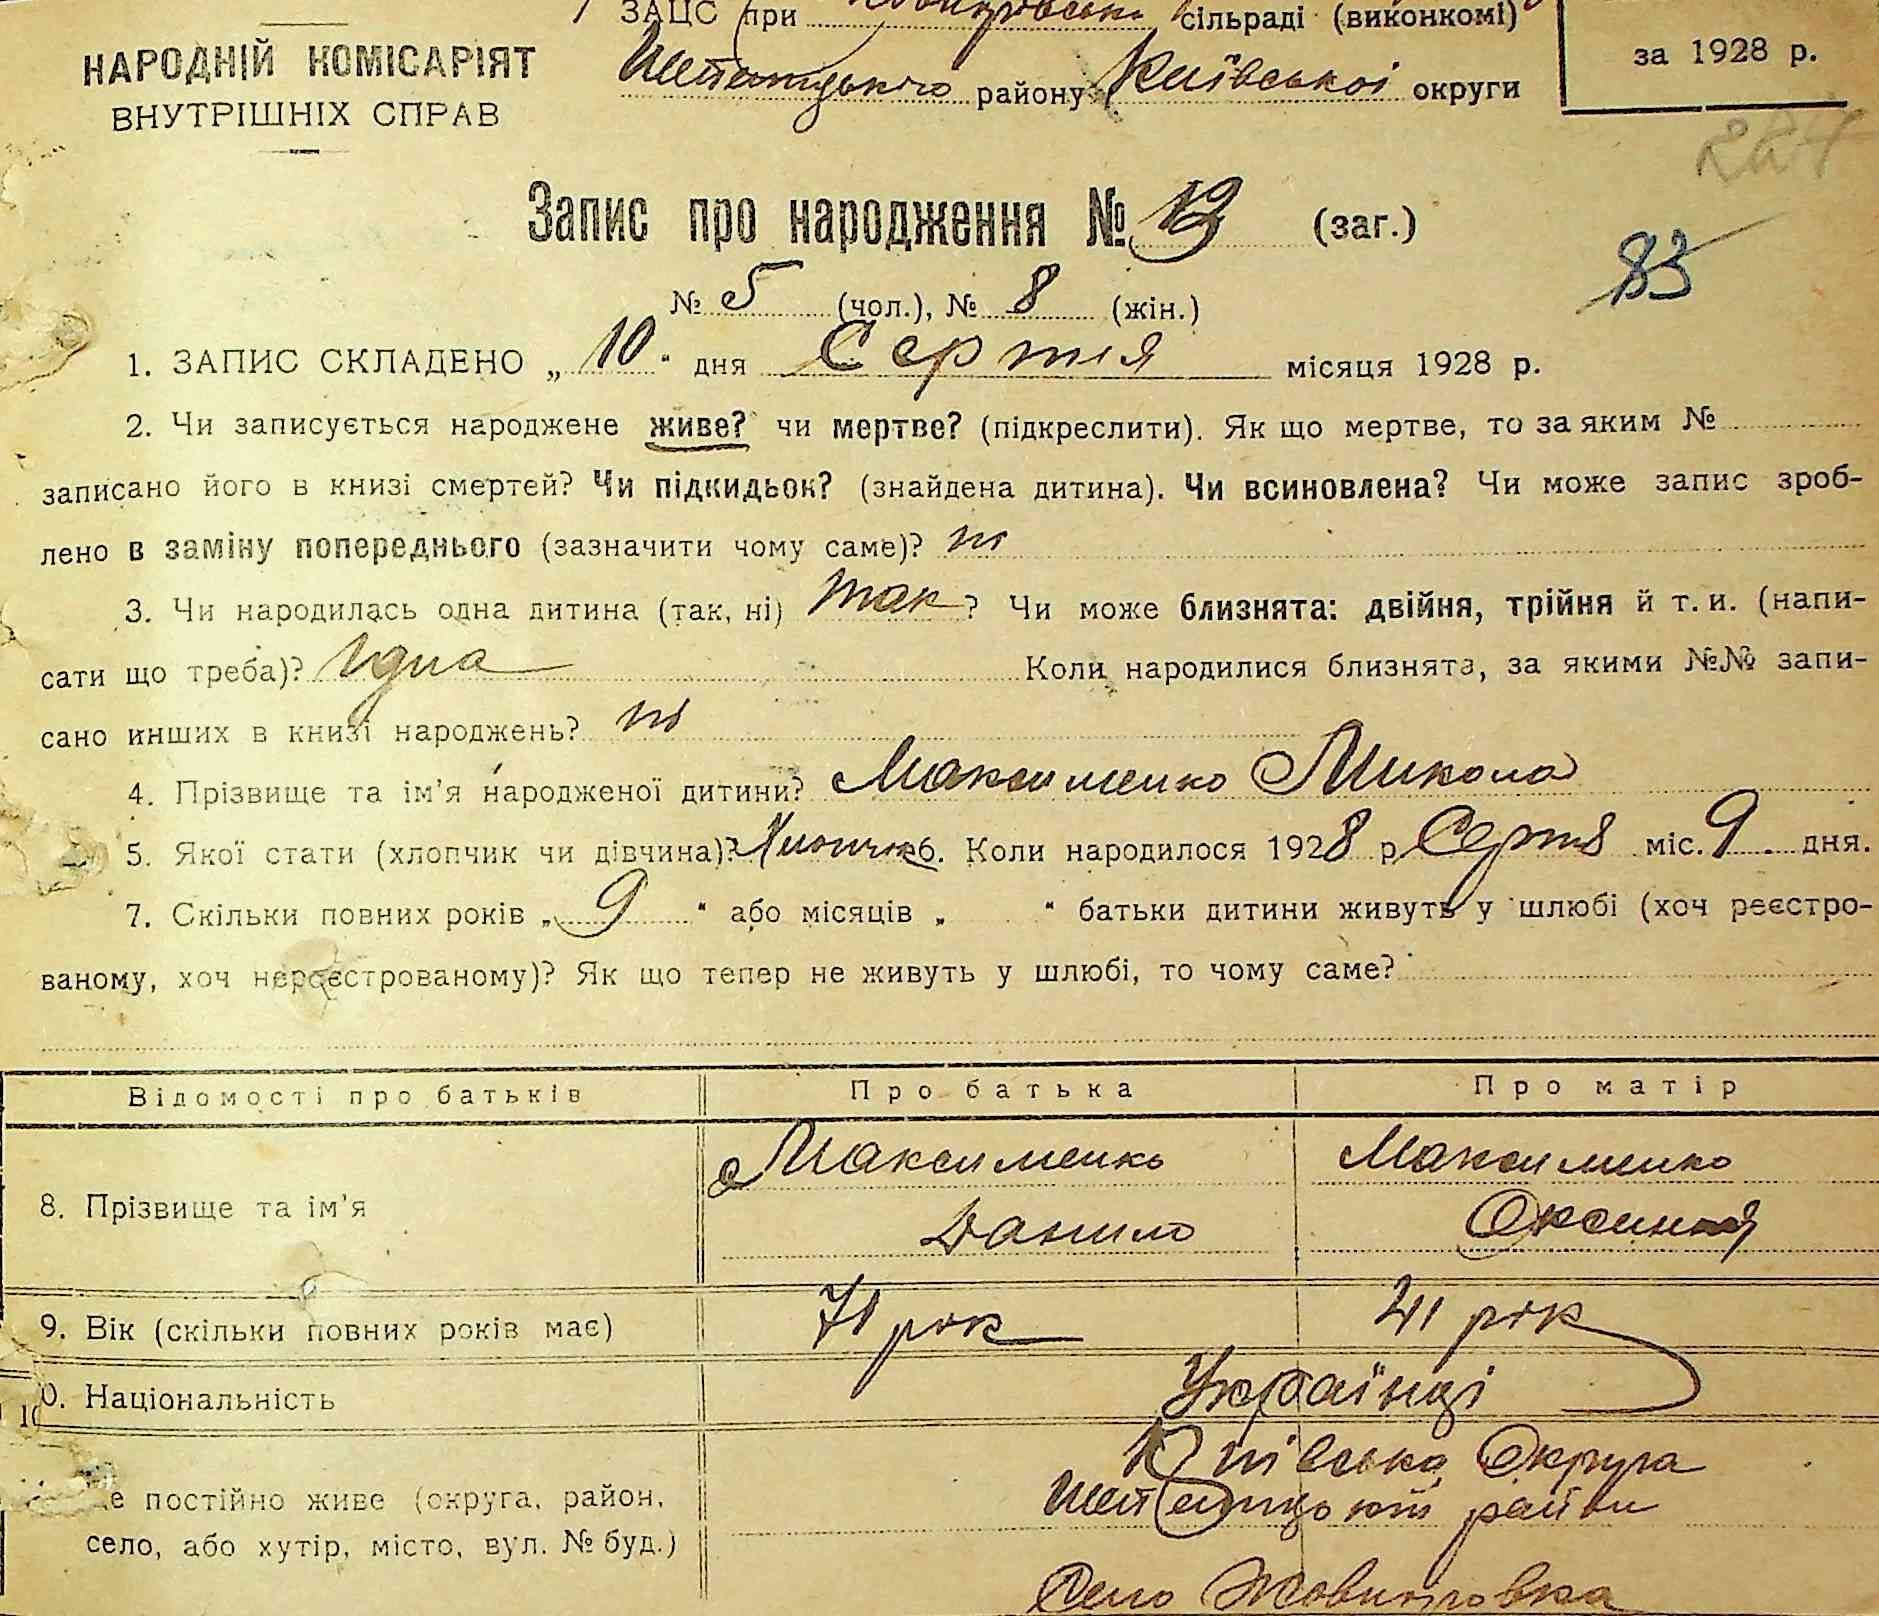 ЗАЦС при сільраді (виконкомі)
НАРОДНІЙ КОМІСАРІЯТ
ВНУТРІШНІХ СПРАВ
району Київської округи
за 1928 р.
224
Запис про народження № 13 (заг.)
83
№ 5 (чол.), № 8 (жін.)
1. ЗАПИС СКЛАДЕНО „ 10 “ дня Серпня місяця 1928 р.
2. Чи записується народжене живе? чи мертве? (підкреслити). Як що мертве, то за яким №
записано його в книзі смертей? Чи підкидьок? (знайдена дитина). Чи всиновлена? Чи може запис зроб-
лено в заміну попереднього (зазначити чому саме)? ні
3. Чи народилась одна дитина (так, ні) так? Чи може близнята: двійня, трійня й т. и. (напи-
сати що треба)? Одна Коли народилися близнята, за якими №№ запи-
сано инших в книзі народжень? ні
4. Прізвище та ім'я народженої дитини? Максименко Микола
5. Якої стати (хлопчик чи дівчина)? Хлопчик 6. Коли народилося 1928 р. Серпня міс. 9 дня.
7. Скільки повних років „ 9 “ або місяців „ “ батьки дитини живуть у шлюбі (хоч реєстро-
ваному, хоч нереєстрованому)? Як що тепер не живуть у шлюбі, то чому саме?
Відомості про батьків Про батька Про матір
8. Прізвище та ім'я
Максименко Максименко
Данило Оксиння
9. Вік (скільки повних років має) 71 рок 41 рок
10. Національність Українці
Де постійно живе (округа, район,
село, або хутір, місто, вул. № буд.)
Київська Округа
район
Село